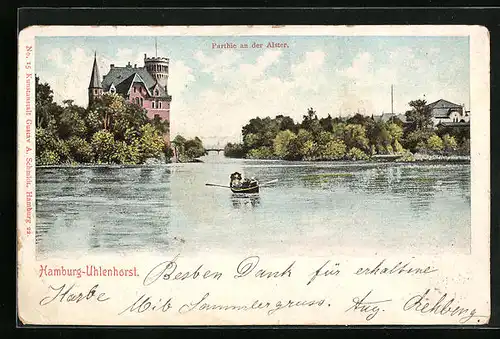 Parthie an der Alster.
No. 15 Kunstanstalt Gustav A. Schmidt, Hamburg 22.
Hamburg-Uhlenhorst.
Besten Dank für erhaltene
Karte Mit Sammlergruss. Aug. Rehberg.